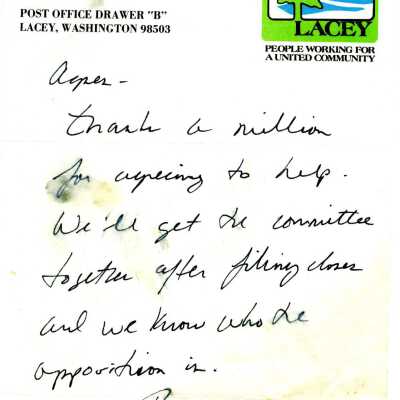 POST OFFICE DRAWER "B"
LACEY, WASHINGTON 98503
LACEY
PEOPLE WORKING FOR
A UNITED COMMUNITY
Thank a million
for agreeing to help.
We'll get the committee
together after filing closes
and we know who the
opposition is.